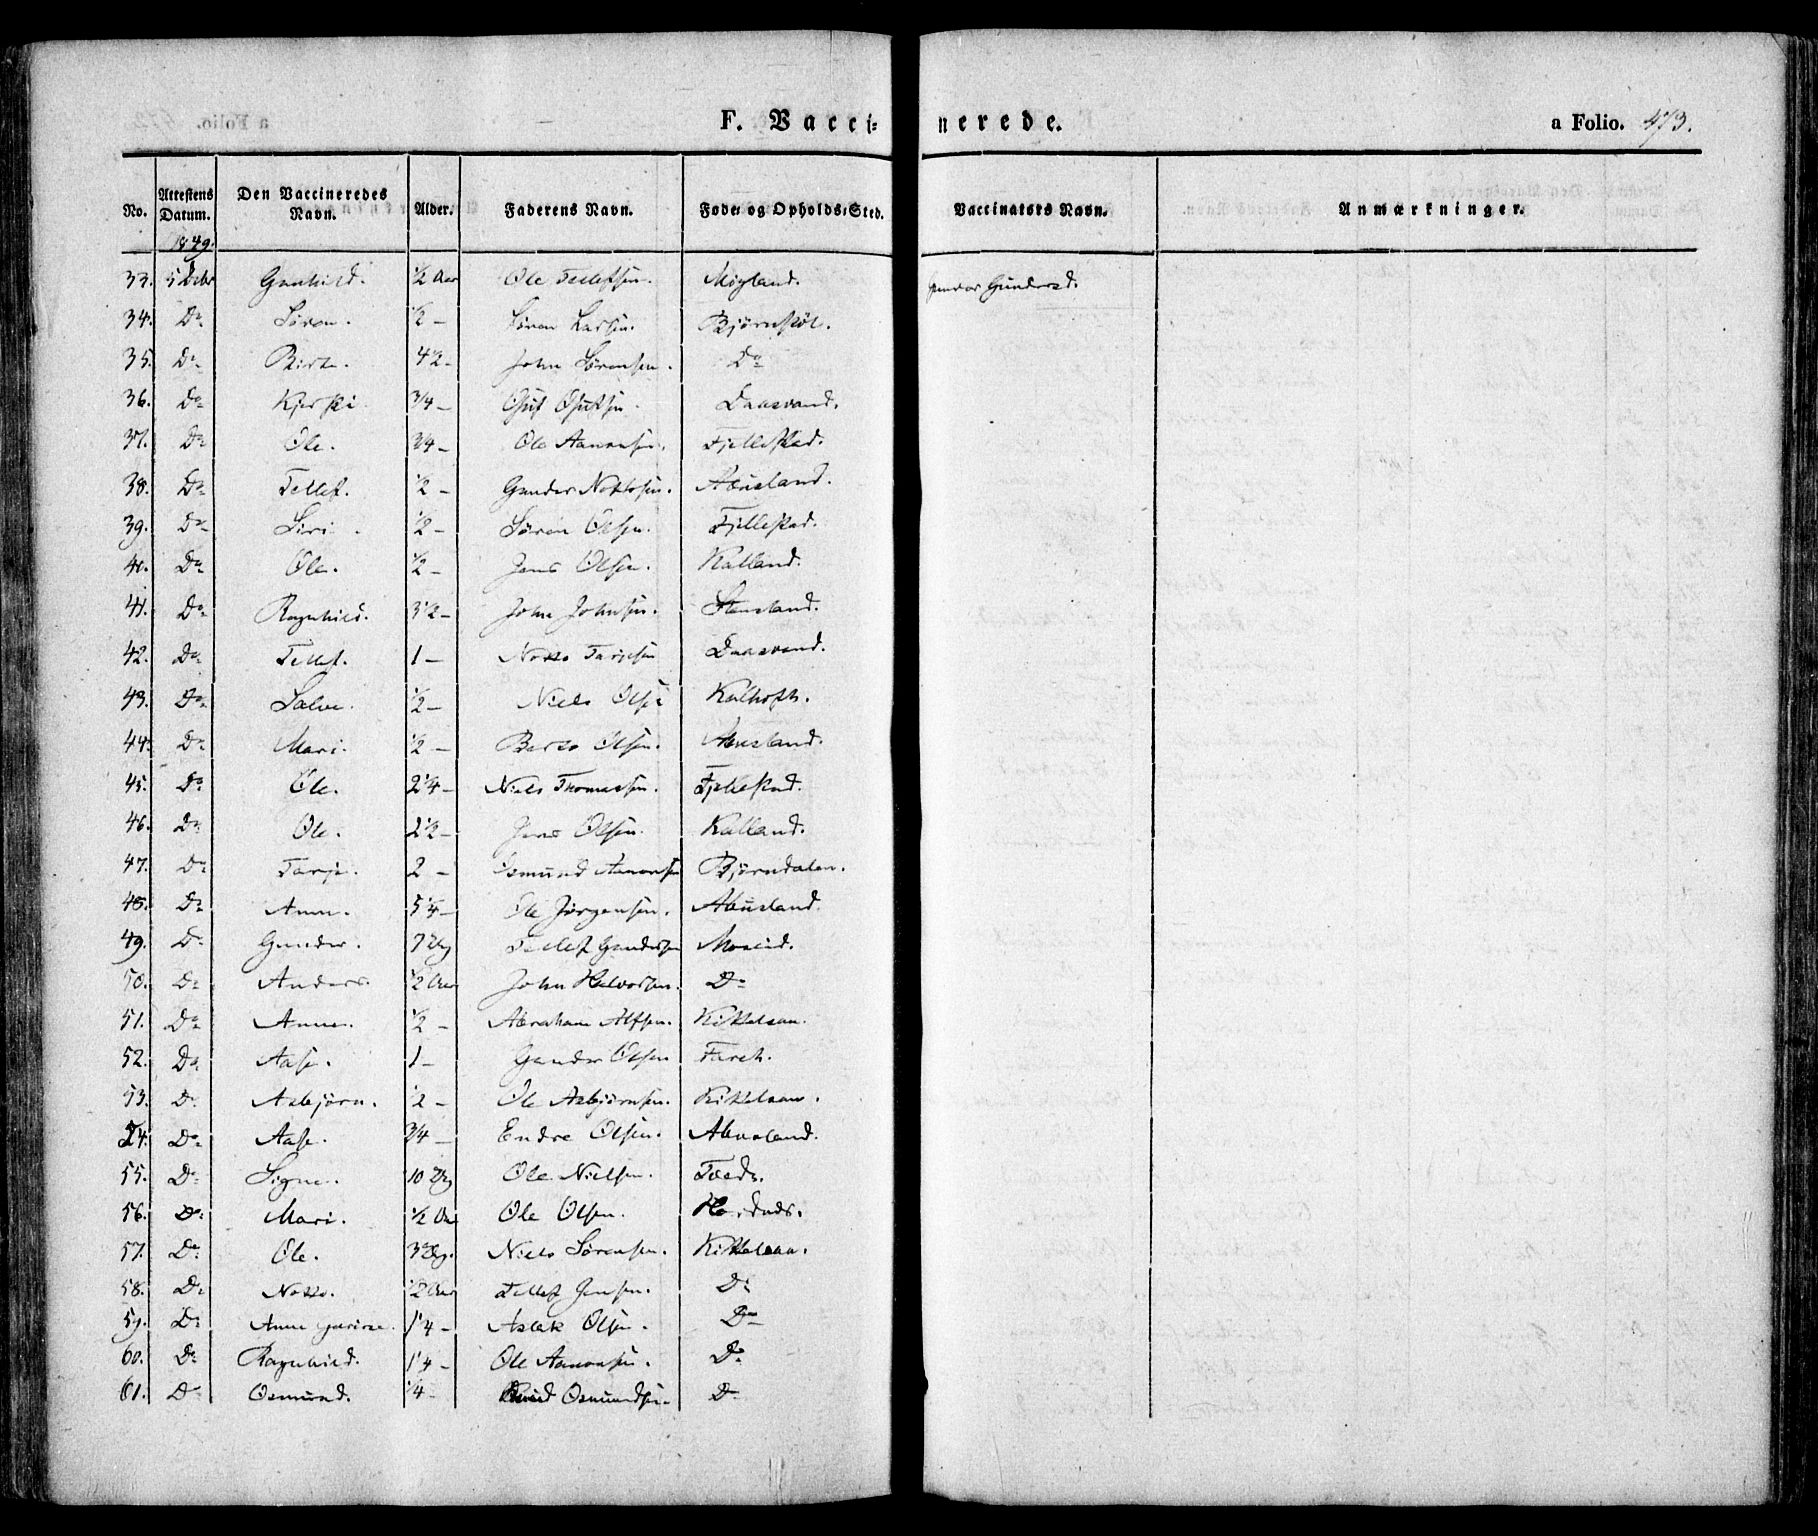 F. Vaccinerede. a Folio. 473.
No. Attestens Datum. Den Vaccineredes Navn. Alder. Faderens Navn. Føde- og Opholds-Sted. Vaccinators Navn. Anmærkninger.
1849.
33. 5 Decbr Gunhild. 1/2 Aar Ole Tellefsen. Mogland. Gunder Gundersd.
34. Do Søren. 1/2 — Søren Larsen. Bjørnsköl.
35. Do Birte. 4 1/2 — John Sørensen. Do
36. Do Kjersti 3/4 — Daasvand.
37. Do Ole. 3/4 — Ole Aanonsen. Fjellestad.
38. Do Tellef. 1/2 — Gunder Nottosen. Abusland.
39. Do Siri. 1/2 — Søren Olsen. Fjellestad.
40. Do Ole. 1/2 — Jens Olsen. Kalland.
41. Do Ragnhild. 3 1/2 — John Johnsen. Stensland.
42. Do Tellef. 1 — Notto Tarjesen Daasvand.
43. Do Salve. 1/2 — Niels Olse Kalhoft.
44. Do Mari. 1/2 — Berto Olsen. Abusland.
45. Do Ole. 2 1/4 — Niels Thomassen. Fjellestad.
46. Do Ole. 2 1/2 — Jens Olsen. Kalland.
47. Do Tarje. 2 — Osmund Aanonsen Bjørndalen.
48. Do Anne. 5 1/4 — Ole Jørgensen. Abusland.
49. Do Gunder. 7 Ug Tellef Gundersen Moseid.
50. Do Anders. 1/2 Aar John Halvorsen. Do
51. Do Anne. 1/2 — Abraham Alfsen. Kittelsaa.
52. Do Aase. 1 — Gunder Olsen
53. Do Asbjørn. 1/2 — Ole Asbjørnsen. Kittelsaa.
54. Do Aase. 3/4 — Endre Olsen. Abusland.
55. Do Signe. 10 Ug Ole Nielsen. Tveds.
56. Do Mari. 1/2 Aar Ole Olsen.
57. Do Ole. 3 Ug. Niels Sørensen. Kittelsaa.
58. Do Notto. 1/2 Aar Tellef Jensen. Do
59. Do Anne 1 1/4 — Aslak Olsen. Do
60. Do Ragnhild. 1 1/4 — Ole Aanonsen. Do
61. Do Osmund. 1/4 — Osmundsen. Do